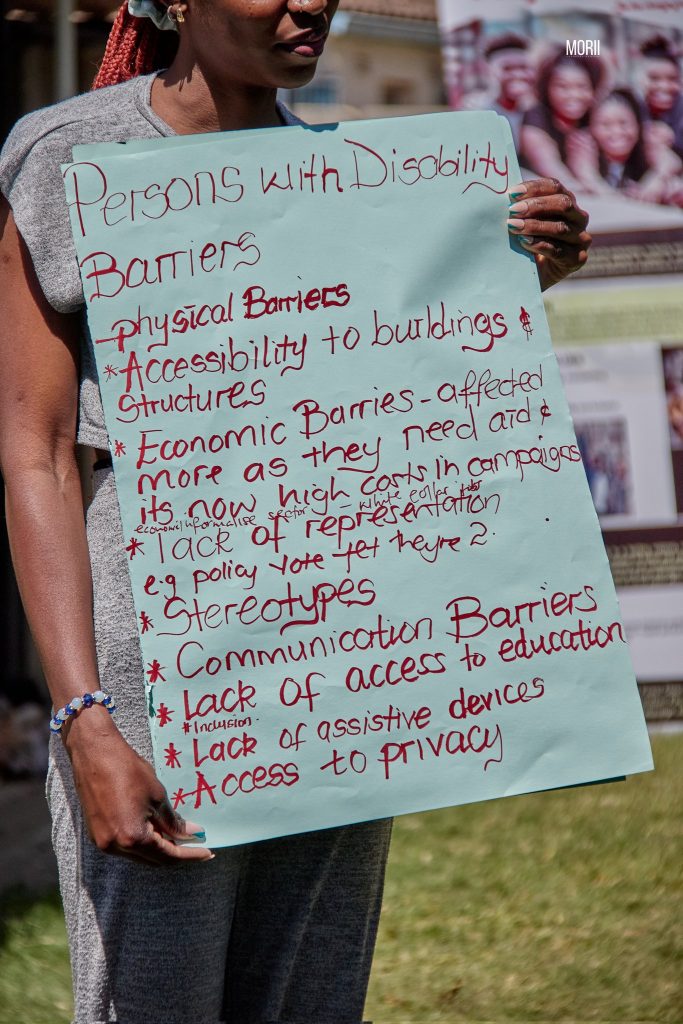 MORII
Persons with Disability
Barriers
- physical Barriers
* Accessibility to buildings &
structures
* Economic Barries - affected
more as they need aid &
its now high costs in campaigns
sector - white collar
* lack of representation
e.g policy vote yet theyre 2.
* Stereotypes
* Communication Barriers
* Lack of access to education
* Inclusion.
* Lack of assistive devices
* Access to privacy